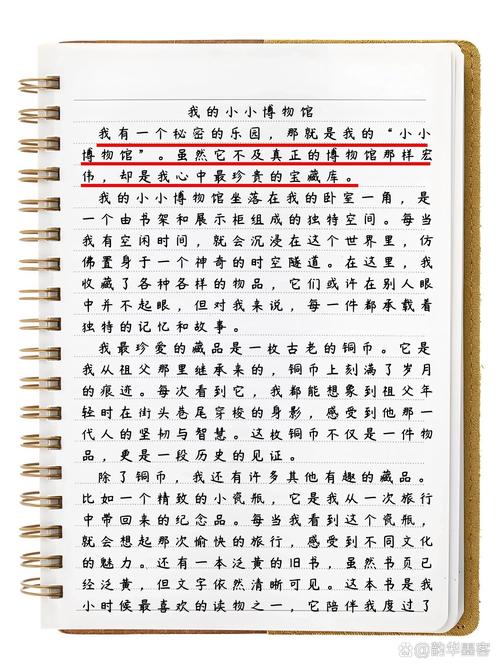 我的小小博物馆
我有一个秘密的乐园，那就是我的“小小
博物馆”。虽然它不及真正的博物馆那样宏
伟，却是我心中最珍贵的宝藏库。
我的小小博物馆坐落在我的卧室一角，是
一个由书架和展示柜组成的独特空间。每当
我有空闲时间，就会沉浸在这个世界里，仿
佛置身于一个神奇的时空隧道。在这里，我
收藏了各种各样的物品，它们或许在别人眼
中并不起眼，但对我来说，每一件都承载着
独特的记忆和故事。
我最珍爱的藏品是一枚古老的铜币。它是
我从祖父那里继承来的，铜币上刻满了岁月
的痕迹。每次看到它，我都能想象到祖父年
轻时在街头巷尾穿梭的身影，感受到他那一
代人的坚韧与智慧。这枚铜币不仅是一件物
品，更是一段历史的见证。
除了铜币，我还有许多其他有趣的藏品。
比如一个精致的小瓷瓶，它是我从一次旅行
中带回来的纪念品。每当我看到这个瓷瓶，
就会想起那次愉快的旅行，感受到不同文化
的魅力。还有一本泛黄的旧书，虽然书页已
经泛黄，但文字依然清晰可见。这本书是我
小时候最喜欢的读物之一，它陪伴我度过了
韵华墨客